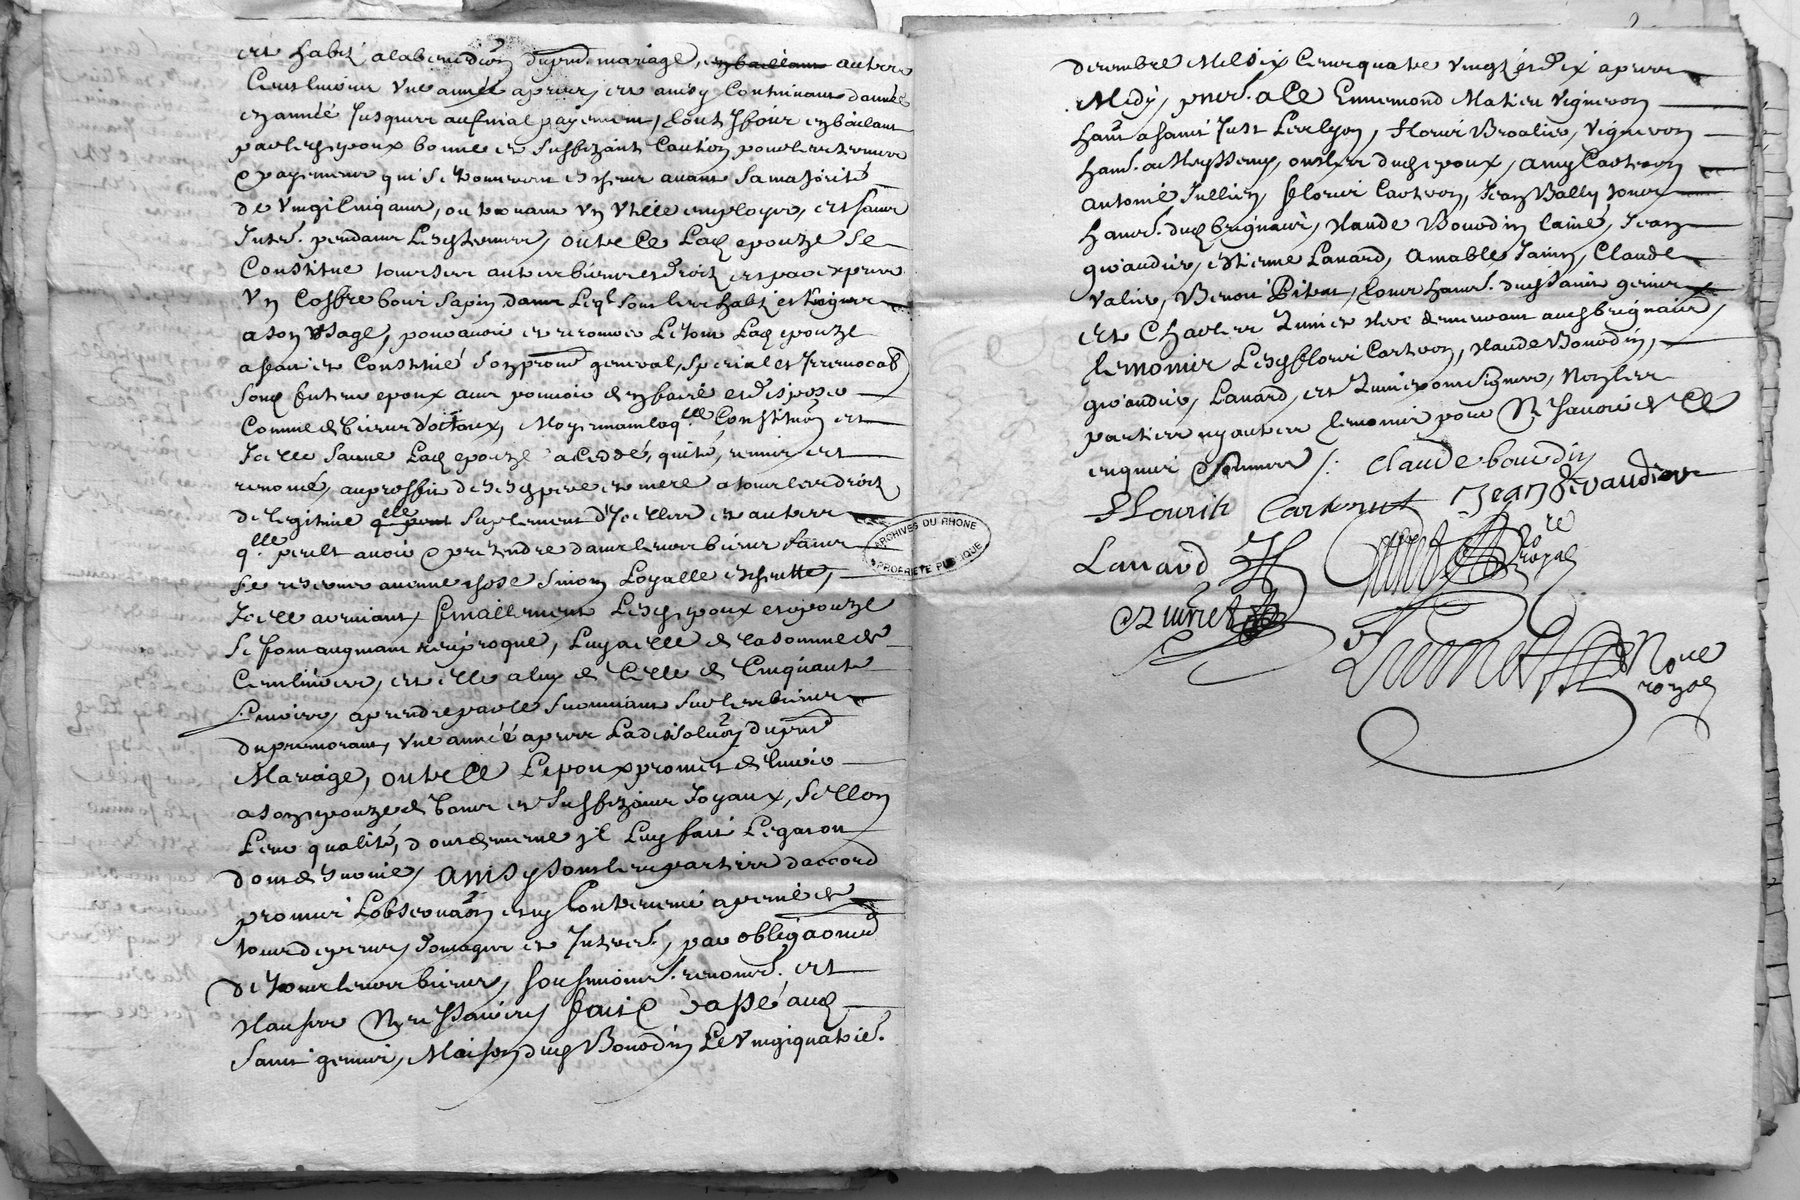 et habitz a la benediōn du pnt mariage, en baillant autres
Cent livres une année apres, et ainsy continuant dannée
en année Jusques au final payement,
par lesd epoux bonne et suffizante Caution pour les termes
payements qui se trouveront escheus avant sa majorité
de vingt Cinq ans, ou trouvant un utille employ, et sans
Intert. pendant lesd termes, outre Ce Lad epouze se
Constitue tous ses autres biens et droitz et par expres
Un Coffre bois sapin dans leql sont ses habitz et linges
a son usage, pour avoir et recouvrer le tout Lad epouze
a fait et Constitué son procur general, special et Irrevocab
Sond futur epoux avec pouvoir d en faire et disposer
Comme de biens dotaux, Moyennant laqlle Constitūon et
Icelle sauve Lad epouze a Ceddé, quité, remis et
renoncé, au proffit de sesd pere et mere a tous les droitz
de legitime suplement d'Icelle et autres
qlle peult avoir et pretendre dans leurs biens sans
se reserver aucune chose sinon Loyalle escheutte,
Icelle avenant, finallement Lesd epoux et epouze
se font augment reciproque, Luy a elle de la somme de
Cent livres, et elle a luy de Celle de Cinquante
Livres, a prendre par le survivant sur les biens
du premourant, une année apres La dissolūon du pnt
Mariage, outre Ce L'epoux promet de livrer
a son epouze de bons et suffizans Joyaux, sellon
Leur qualité, dont de mesme il Luy fait
don de survie, Ainsy sont les parties d'accord
promis L'observāon et ny Contrevenir a peine de
tous despens, domages et Interts, par obligāon
de tous leurs biens, soubmions. renons. et
clauses Necessaires, fait et passé aud
Saint genis, Maison dud Bourdin Le vingtquatrie.
decembre Mil six Cens quatre vingtz et dix apres
Midy, pnts. a Ce Ennemond Matieu vigneron
hant a saint Just Les lyon, Floris Broalier, vigneron
hant. a Meyssemy, oncles dud epoux, Amy Carteron
Antoine Jullien, floris Carteron, Jean Bally tous
hants. dud brignais, claude Bourdin laine, Jean
givaudier, estienne Lanard, Amable Janin, Claude
Valier, Benoit Pitrat, tous hants. dud saint genis
Et Charles Zunier demeurant aud brignais,
temoins Lesd floris Carteron, claude Bourdin,
givaudier, Lanard, et Zunier ont signez, Non les
parties ny autres temoins pour Ne scavoir de Ce
enquis et sommes /. claude bourdin
flouris Carteront Jean Givaudier
Lanard
Nore
royal
Zunier
Nore
royal
ARCHIVES DU RHONE
PROPRIETE PUBLIQUE